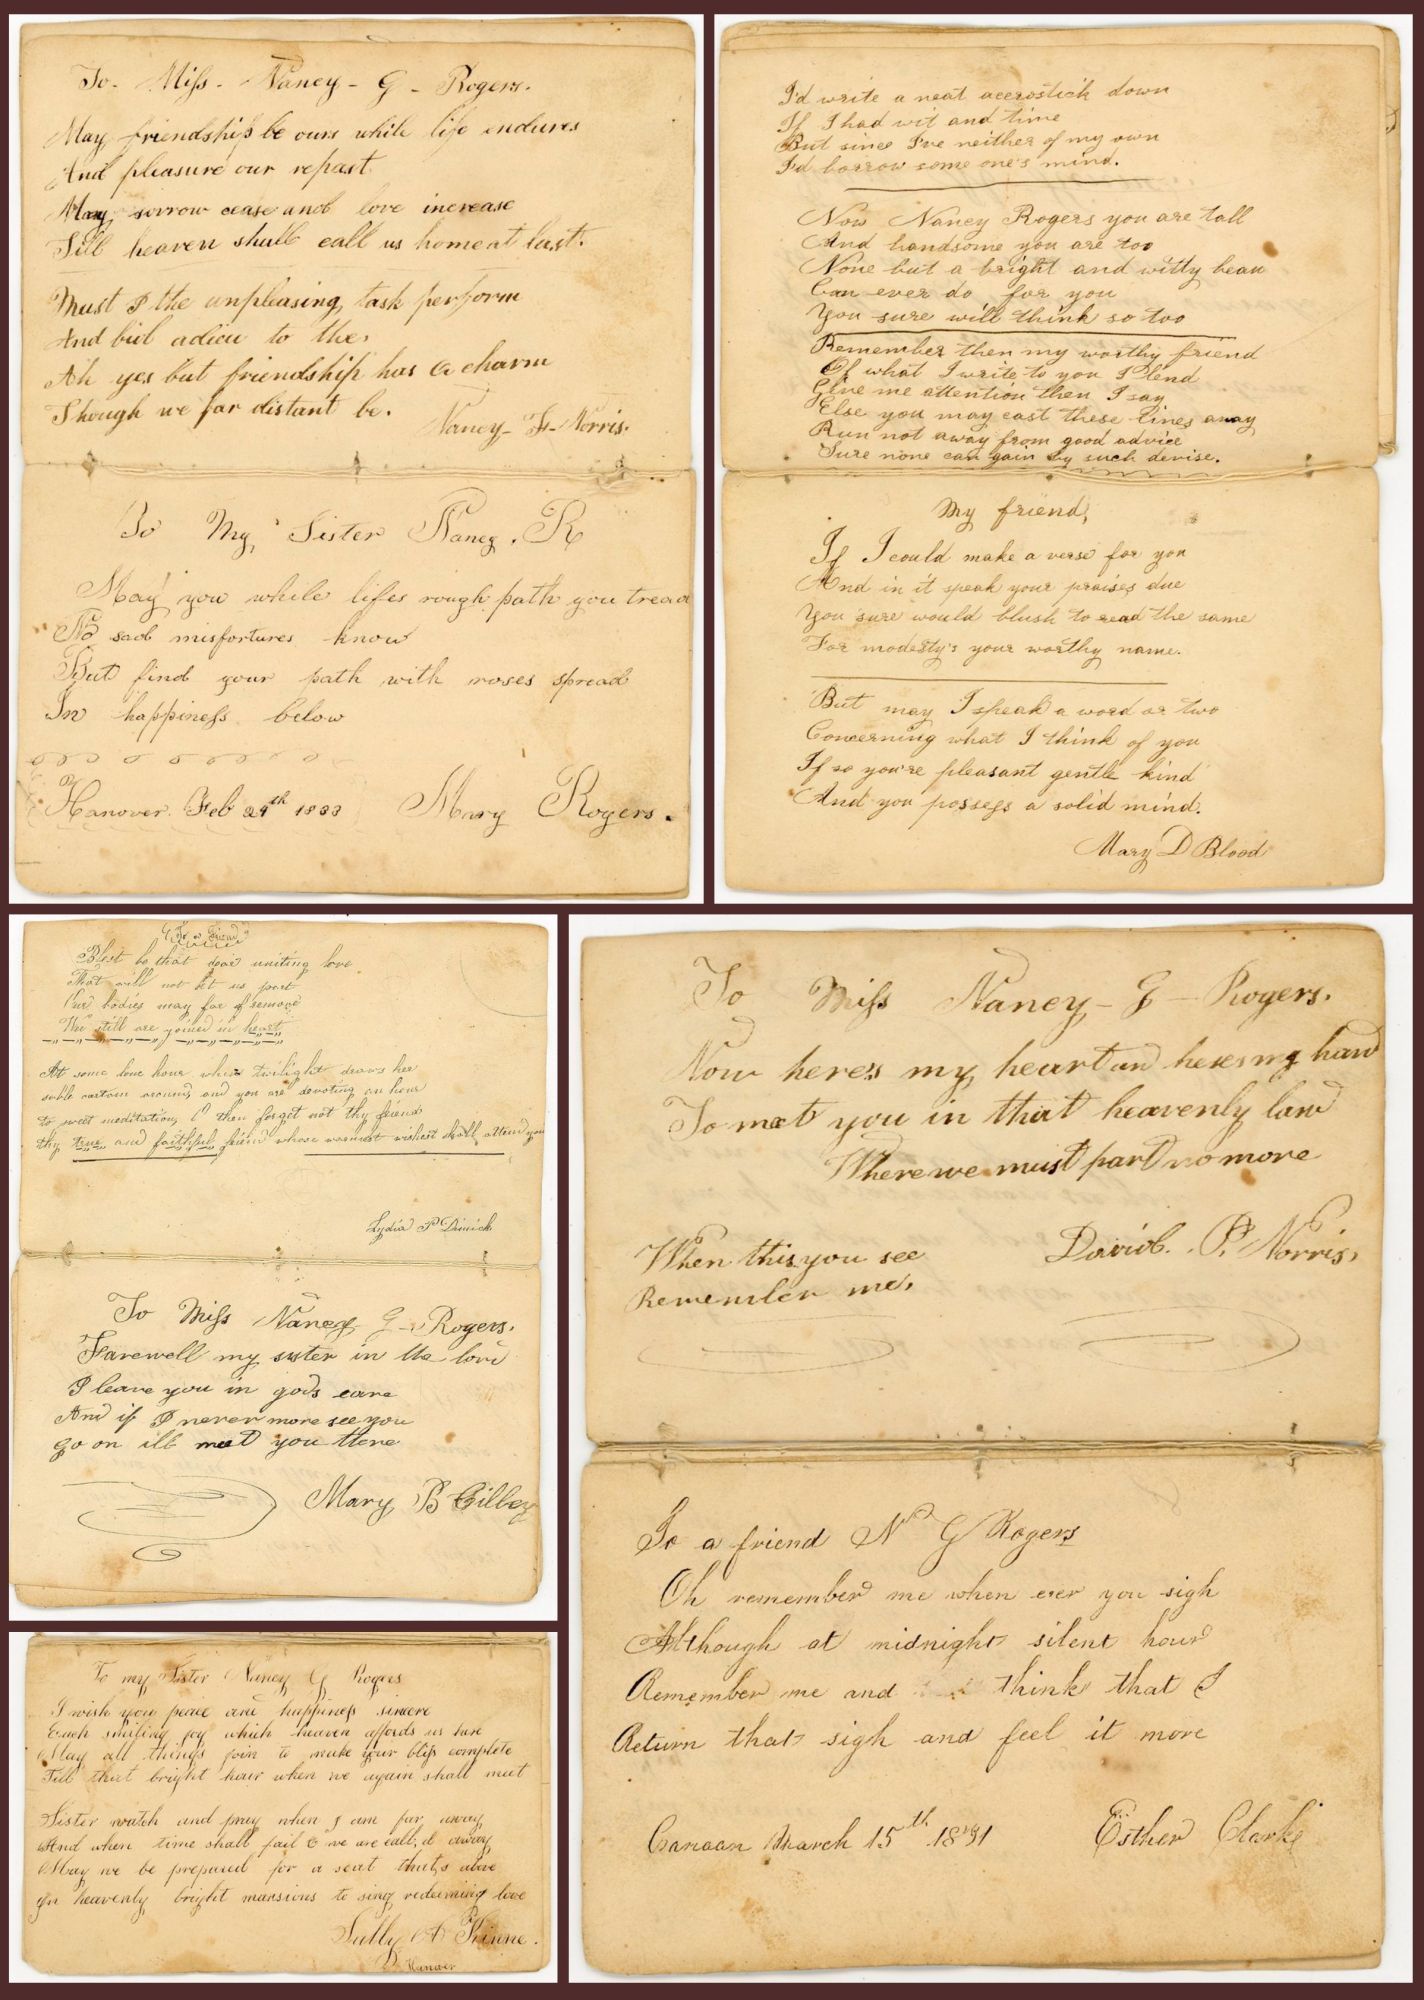 To - Miss - Nancy - G - Rogers.
May friendship be ours while life endures
And pleasure our repast
May sorrow cease and love increase
Till heaven shall call us home at last.
Must I the unpleasing task perform
And bid adieu to the,
Ah yes but friendship has a charm
Though we far distant be.
Nancy - - Norris.
To My Sister Nancy . R
May you while lifes rough path you tread
No sad misfortures know
But find your path with roses spread
In happiness below
Hanover Feb 29th 1833 Mary Rogers.
I'd write a neat accrostick down
If I had wit and time
But since I've neither of my own
I'd borrow some one's mind.
Now Nancy Rogers you are tall
And handsome you are too
None but a bright and witty beau
Can ever do for you
You sure will think so too
Remember then my worthy friend
Of what I write to you I lend
Give me attention then I say
Else you may cast these lines away
Run not away from good advice
Sure none can gain by such devise.
My friend,
If I could make a verse for you
And in it speak your praises due
You sure would blush to read the same
For modesty's your worthy name.
But may I speak a word or two
Concerning what I think of you
If so you're pleasant gentle kind
And you possess a solid mind.
Mary D Blood
To a Friend
Blest be that dear uniting love
That will not let us part
Our bodies may far of remove
We still are joined in heart
At some lone hour when twilight draws her
sable curtain around, and you are devoting an hour
to sweet meditation, O then forget not thy friend
thy true and faithful friend whose warmest wishest shall attend you
Lydia P Dimick
To Miss Nancy G - Rogers.
Farewell my sister in the lord
I leave you in gods care
And if I never more see you
go on ill meet you there
Mary B Cilley
To Miss Nancy - G - Rogers.
Now here's my heart and heres my hand
To meet you in that heavenly land
Where we must part no more
When this you see
Remember me,
David. P. Norris,
To a friend N G Rogers
Oh remember me when ever you sigh
Although at midnight silent hour
Remember me and think that I
Return that sigh and feel it more
Canaan March 15th 1831 Esther Clark
To my Sister Nancy G Rogers
I wish you peace and happiness sincere
Each smiling joy which heaven affords us here
May all things join to make your bliss complete
Till that bright hour when we again shall meet
Sister watch and pray when I am far away
And when time shall fail & we are call,d away
May we be prepared for a seat that,s above
In heavenly bright mansions to sing redeeming love
Sally A Kinne.
Hanover